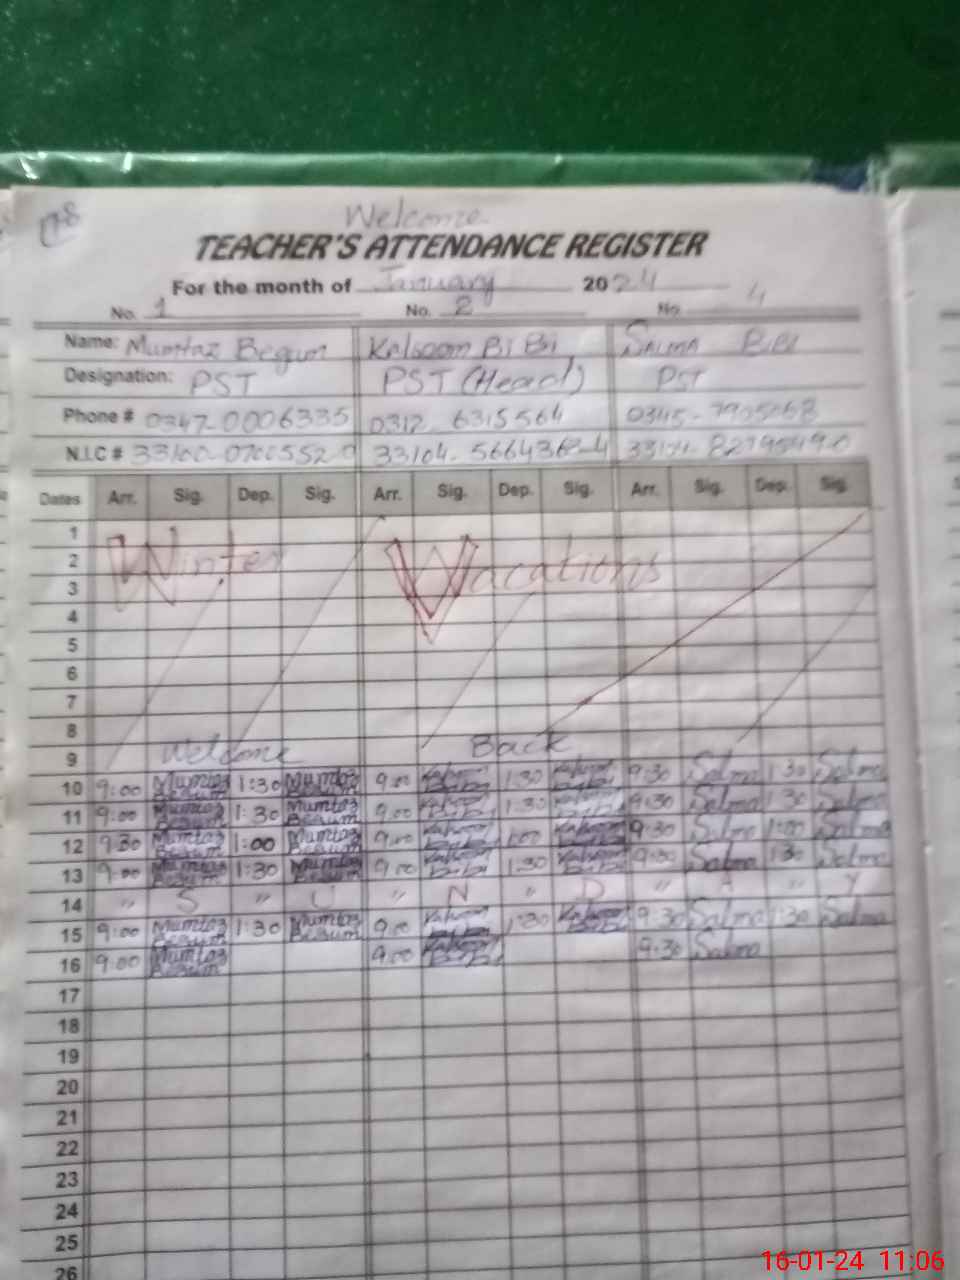 178
Welcome
TEACHER'S ATTENDANCE REGISTER
For the month of January 2024
No. 1 No. 2 No. 4
Name: Mumtaz Begum Kalsoom Bi Bi SALMA BIBI
Designation: PST PST (Head) PST
Phone # 0347-0006335 0312 6315564
N.I.C #
Dates Arr. Sig. Dep. Sig. Arr. Sig. Dep. Sig. Arr. Sig. Dep. Sig.
1
2 Winter Vacations
3
4
5
6
7
8
9 Welcome Back
10 9:00 Mumtaz Begum 1:30 Mumtaz Begum 9:00 1:30 9:30 Salma 1:30 Salma
11 9:00 Mumtaz Begum 1:30 Mumtaz Begum 9:00 1:30 9:30 Salma 1:30 Salma
12 9:30 Mumtaz Begum 1:00 Mumtaz Begum 9:00 1:00 9:30 Salma 1:00 Salma
13 9:00 Mumtaz Begum 1:30 Mumtaz Begum 9:00 1:30 9:30 Salma 1:30 Salma
14 " S " U " N " D " A " Y
15 9:00 Mumtaz Begum 1:30 Mumtaz Begum 9:00 1:30 9:30 Salma 1:30 Salma
16 9:00 Mumtaz Begum 9:00 9:30 Salma
17
18
19
20
21
22
23
24
25
26
16-01-24 11:06